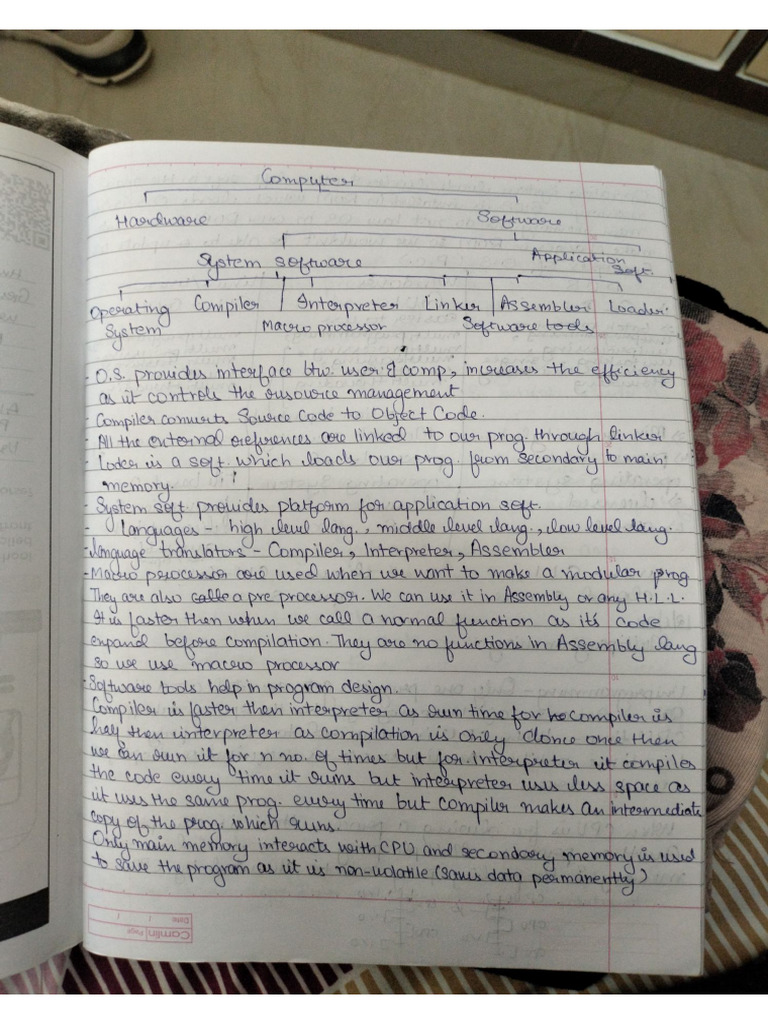 Computer
Hardware Software
System software Application Soft.
Operating System Compiler Interpreter Linker Assembler Loader
Macro processor Software tools
- O.S. provides interface btw. user & comp, increases the efficiency
as it controls the resource management
- Compiler converts Source Code to Object Code.
- All the external references are linked to our prog. through linker
- Loder is a soft. which loads our prog. from secondary to main
memory.
- System soft provides platform for application soft.
- Languages - high level lang., middle level lang., low level lang.
- Language translators - Compiler, Interpreter, Assembler
- Macro processor are used when we want to make a modular prog
They are also calle a pre processor. We can use it in Assembly or any H.L.L.
It is faster then when we call a normal function as its code
expand before compilation. They are no functions in Assembly lang
so we use macro processor
- Software tools help in program design.
Compiler is faster then interpreter as run time for compiler is
then interpreter as compilation is only donce once then
we can run it for n no. of times but for interpreter it compiles
the code every time it runs but interpreter uses less space as
it uses the same prog. every time but compiler makes an intermediate
copy of the prog which runs.
Only main memory interacts with CPU and secondary memory is used
to save the program as it is non-volatile (saves data permanently)
Camlin Page
Date / /